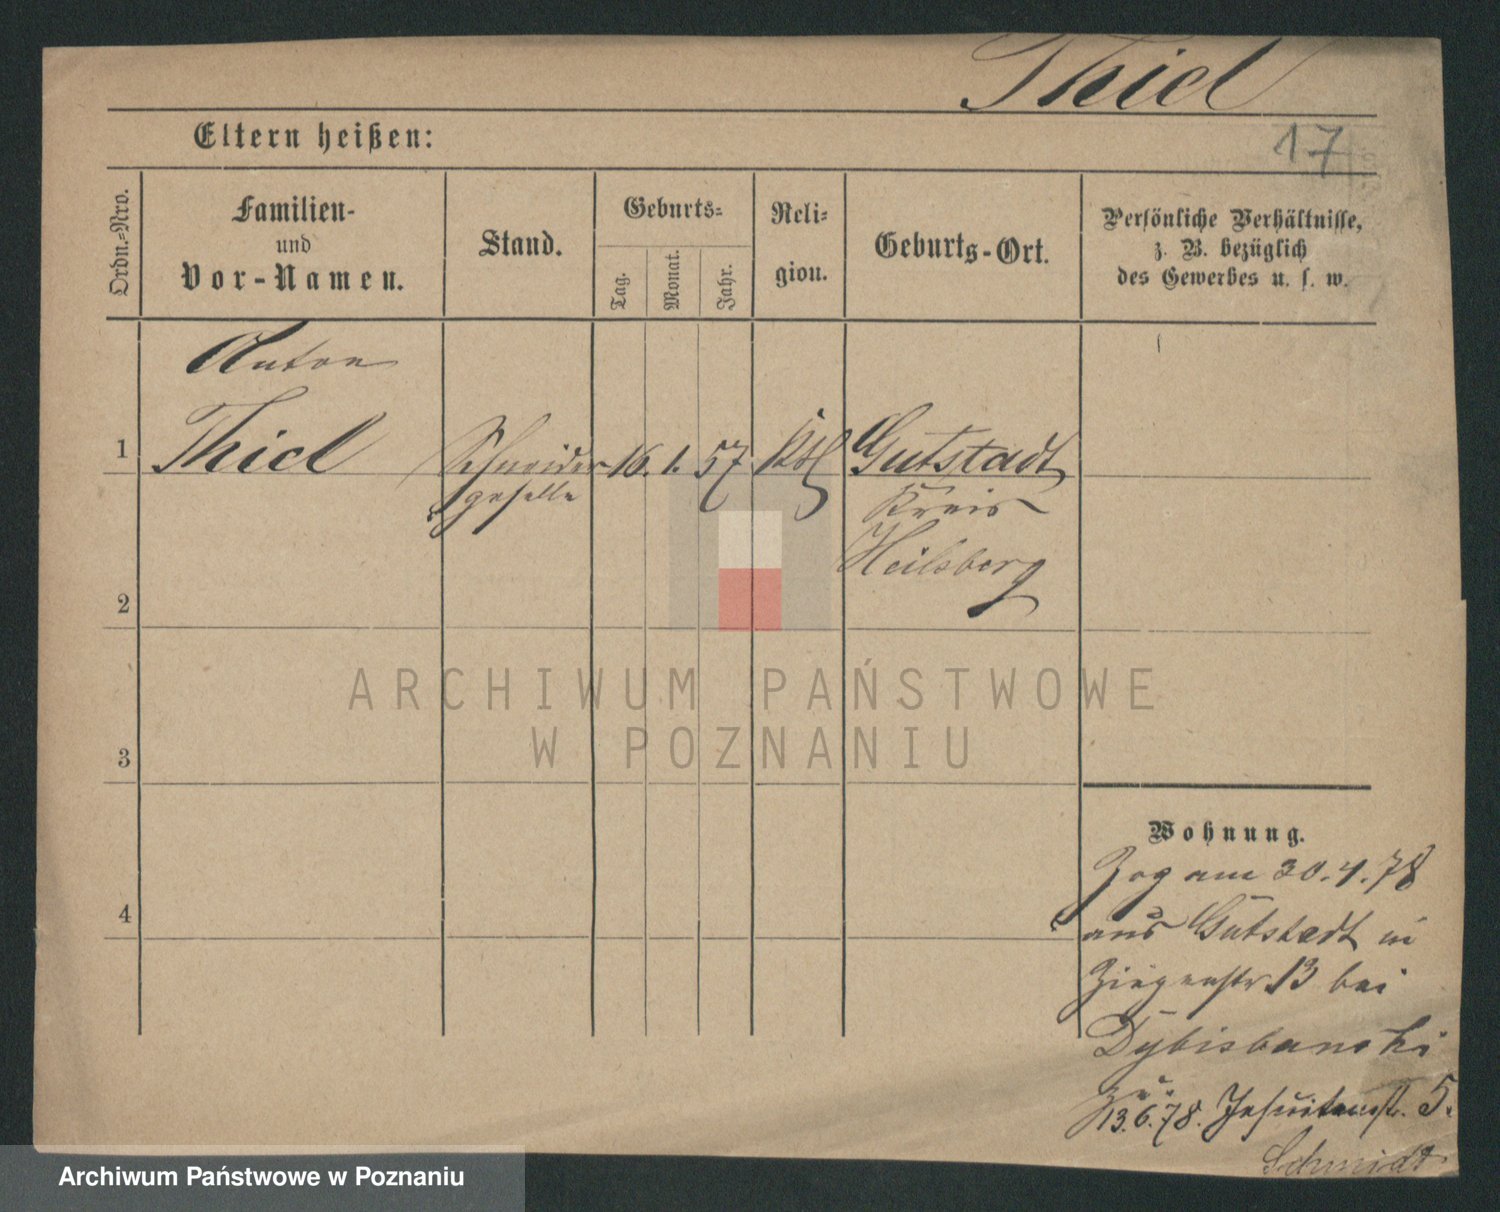 Thiel
Eltern heißen:
17
Ordn.=Nro.
Familien-
und
Vor-Namen.
Stand.
Geburts=
Tag.
Monat.
Jahr.
Reli=
gion.
Geburts-Ort.
Persönliche Verhältnisse,
z. B. bezüglich
des Gewerbes u. s. w.
Anton
1 Thiel Schneider 16. 1. 57 Kth Gutstadt
geselle Kreis
Heilsberg
2
ARCHIWUM PAŃSTWOWE
W POZNANIU
3
Wohnung.
Zog am 30.4.78
4
aus Gutstadt in
Ziegenstr 13 bei
13.6.78. Jesuitenstr. 5.
Schmidt
Archiwum Państwowe w Poznaniu